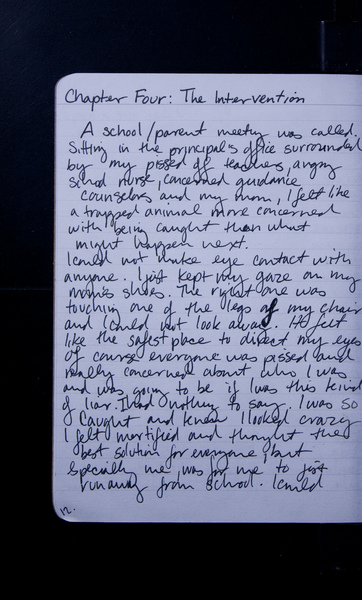 Chapter Four: The Intervention
A school/parent meeting was called.
Sitting in the principal's office surrounded
by my pissed off teachers, angry
school nurse, concerned guidance
counselors and my mom, I felt like
a trapped animal more concerned
with being caught than what
might happen next.
I could not make eye contact with
anyone. I just kept my gaze on my
mom's shoes. The right one was
touching one of the legs of my chair
and I could not look away. It felt
like the safest place to direct my eyes
Of course everyone was pissed and
really concerned about who I was
and was going to be if I was this kind
of liar. I had nothing to say. I was so
caught and knew I looked crazy
I felt mortified and thought the
best solution for everyone, but
especially me, was for me to just
run away from school. I could
12.